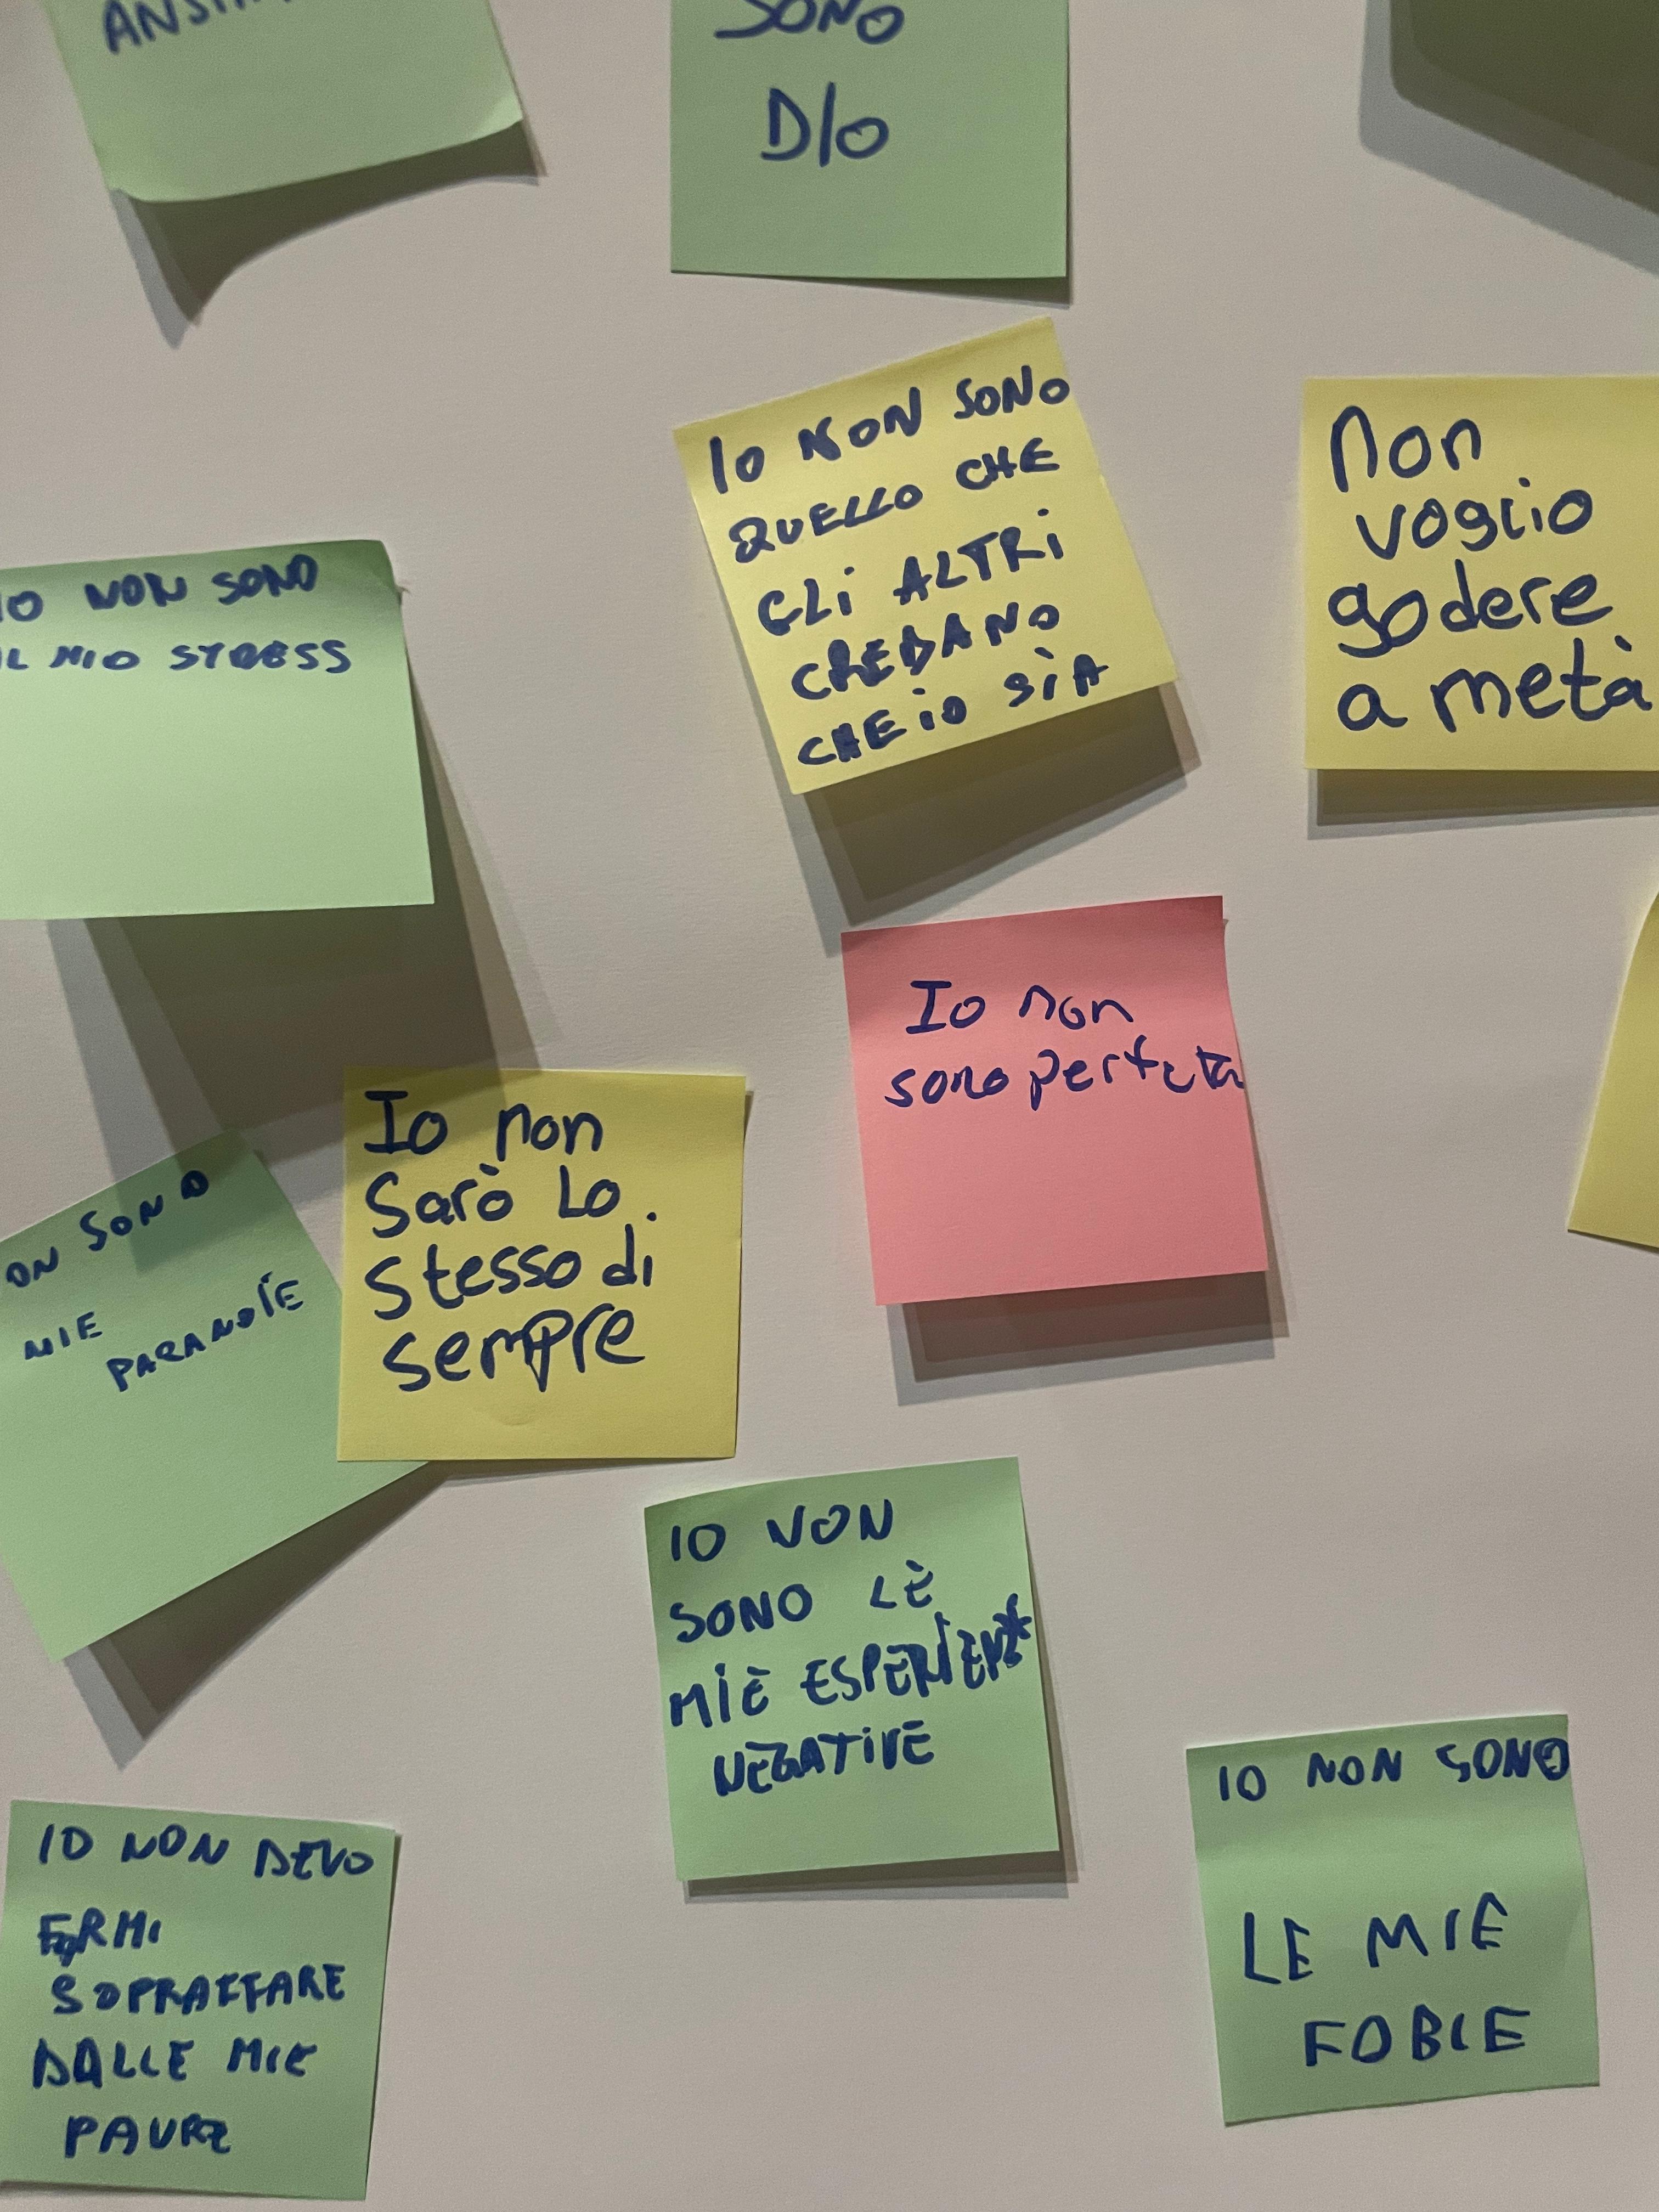 SONO
D/O
IO NON SONO
QUELLO CHE
GLI ALTRI
CREDANO
CHE IO SÌA
Non
voglio
godere
a metà
IO NON SONO
IL MIO STRESS
Io non
sono perfetta
ON SONO
MIE
PARANOÍE
Io non
Sarò Lo
Stesso di
sempre
IO NON
SONO LÈ
MIÈ
NEGATIVE
IO NON SONO
LE MIE
FOBIE
IO NON DEVO
FARMI
SOPRAFFARE
DALLE MIE
PAURE